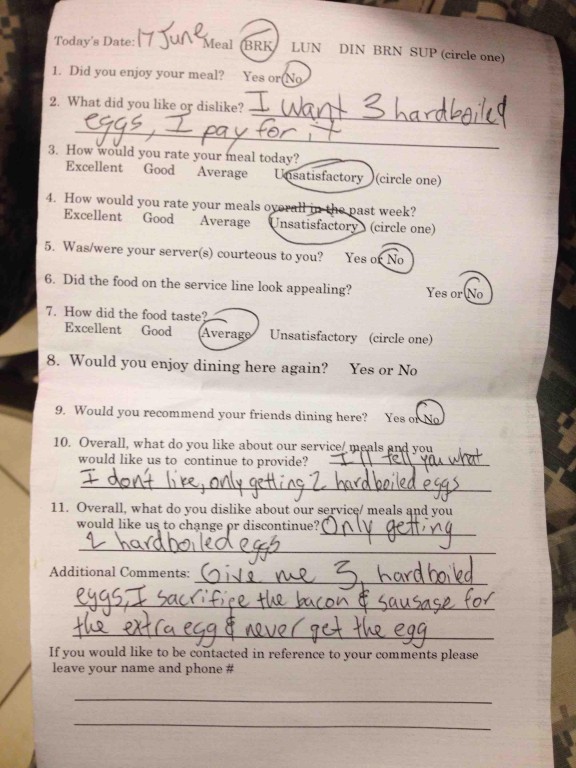 Today's Date: 17 June Meal BRK LUN DIN BRN SUP (circle one)
1. Did you enjoy your meal? Yes or No
2. What did you like or dislike? I want 3 hardboiled
eggs, I pay for it
3. How would you rate your meal today?
Excellent Good Average Unsatisfactory (circle one)
4. How would you rate your meals overall in the past week?
Excellent Good Average Unsatisfactory (circle one)
5. Was/were your server(s) courteous to you? Yes or No
6. Did the food on the service line look appealing? Yes or No
7. How did the food taste?
Excellent Good Average Unsatisfactory (circle one)
8. Would you enjoy dining here again? Yes or No
9. Would you recommend your friends dining here? Yes or No
10. Overall, what do you like about our service/ meals and you
would like us to continue to provide? I'll tell you what
I don't like, only getting 2 hardboiled eggs
11. Overall, what do you dislike about our service/ meals and you
would like us to change or discontinue? Only getting
2 hardboiled eggs
Additional Comments: Give me 3, hardboiled
eggs, I sacrifice the bacon & sausage for
the extra egg & never get the egg
If you would like to be contacted in reference to your comments please
leave your name and phone #